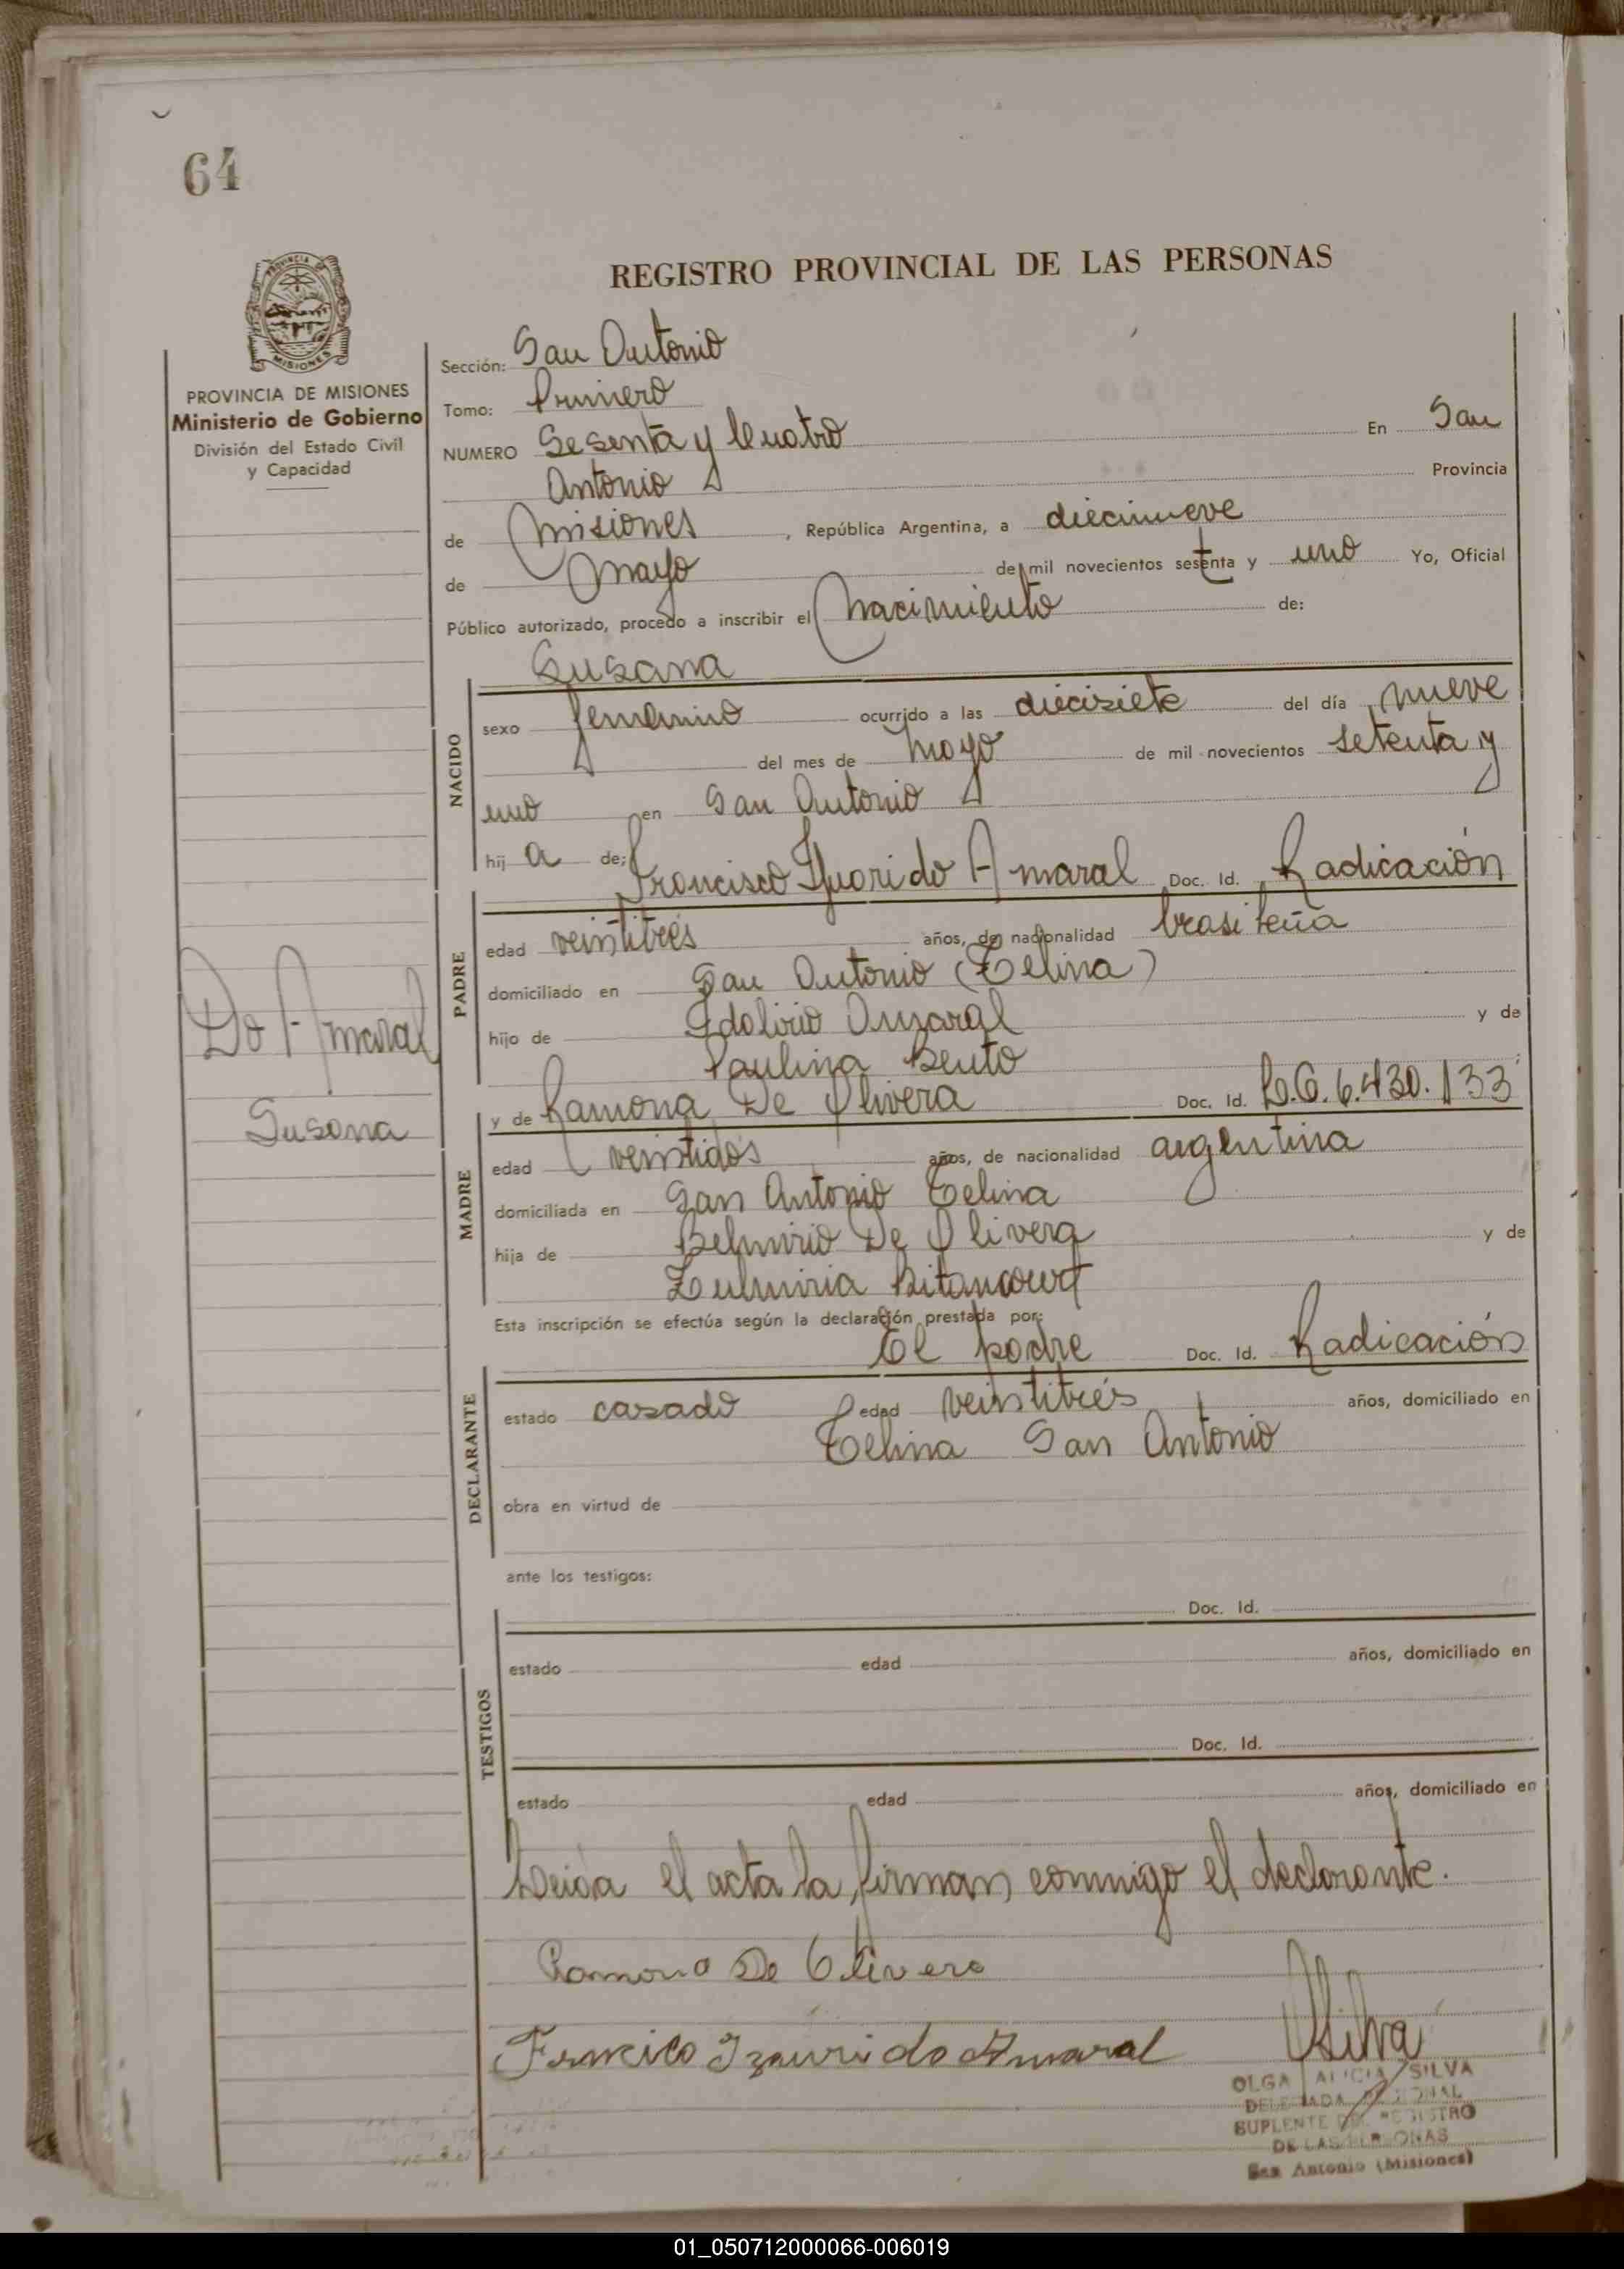 64
REGISTRO PROVINCIAL DE LAS PERSONAS
PROVINCIA DE MISIONES
MISIONES
PROVINCIA DE MISIONES
Ministerio de Gobierno
División del Estado Civil
y Capacidad
Sección: San Antonio
Tomo: Primero
NUMERO Sesenta y Cuatro En San
Antonio Provincia
de Misiones, República Argentina, a diecinueve
de Mayo de mil novecientos setenta y uno Yo, Oficial
Público autorizado, procedo a inscribir el Nacimiento de:
Susana
NACIDO
sexo femenino ocurrido a las diecisiete del día nueve
del mes de Mayo de mil novecientos setenta y
uno en San Antonio
hij a de: Francisco Ysuorido Amaral Doc. Id. Radicación
PADRE
edad veintitrés años, de nacionalidad brasileña
domiciliado en San Antonio (Celina)
hijo de Idolirio Amaral y de
Paulina Bento
Do Amaral
Susana
y de Ramona De Olivera Doc. Id. L.C. 6.430.133
MADRE
edad veintidós años, de nacionalidad argentina
domiciliada en San Antonio Celina
hija de Belmirio De Olivera y de
Zulmiria Bitancourt
Esta inscripción se efectúa según la declaración prestada por:
El padre Doc. Id. Radicación
DECLARANTE
estado casado edad veintitrés años, domiciliado en
Celina San Antonio
obra en virtud de
ante los testigos:
Doc. Id.
TESTIGOS
estado edad años, domiciliado en
Doc. Id.
estado edad años, domiciliado en
Leida el acta la firman conmigo el declarante.
Ramona De Olivera
Francico Izaurido Amaral
OSilva
OLGA ALICIA SILVA
DELEGADA
SUPLENTE DEL REGISTRO
DE LAS PERSONAS
San Antonio (Misiones)
01_050712000066-006019